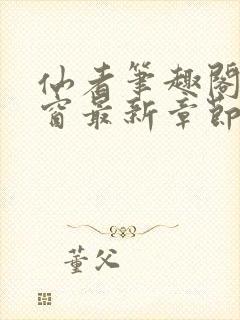 仙者笔趣阁
窗最新章节
董父